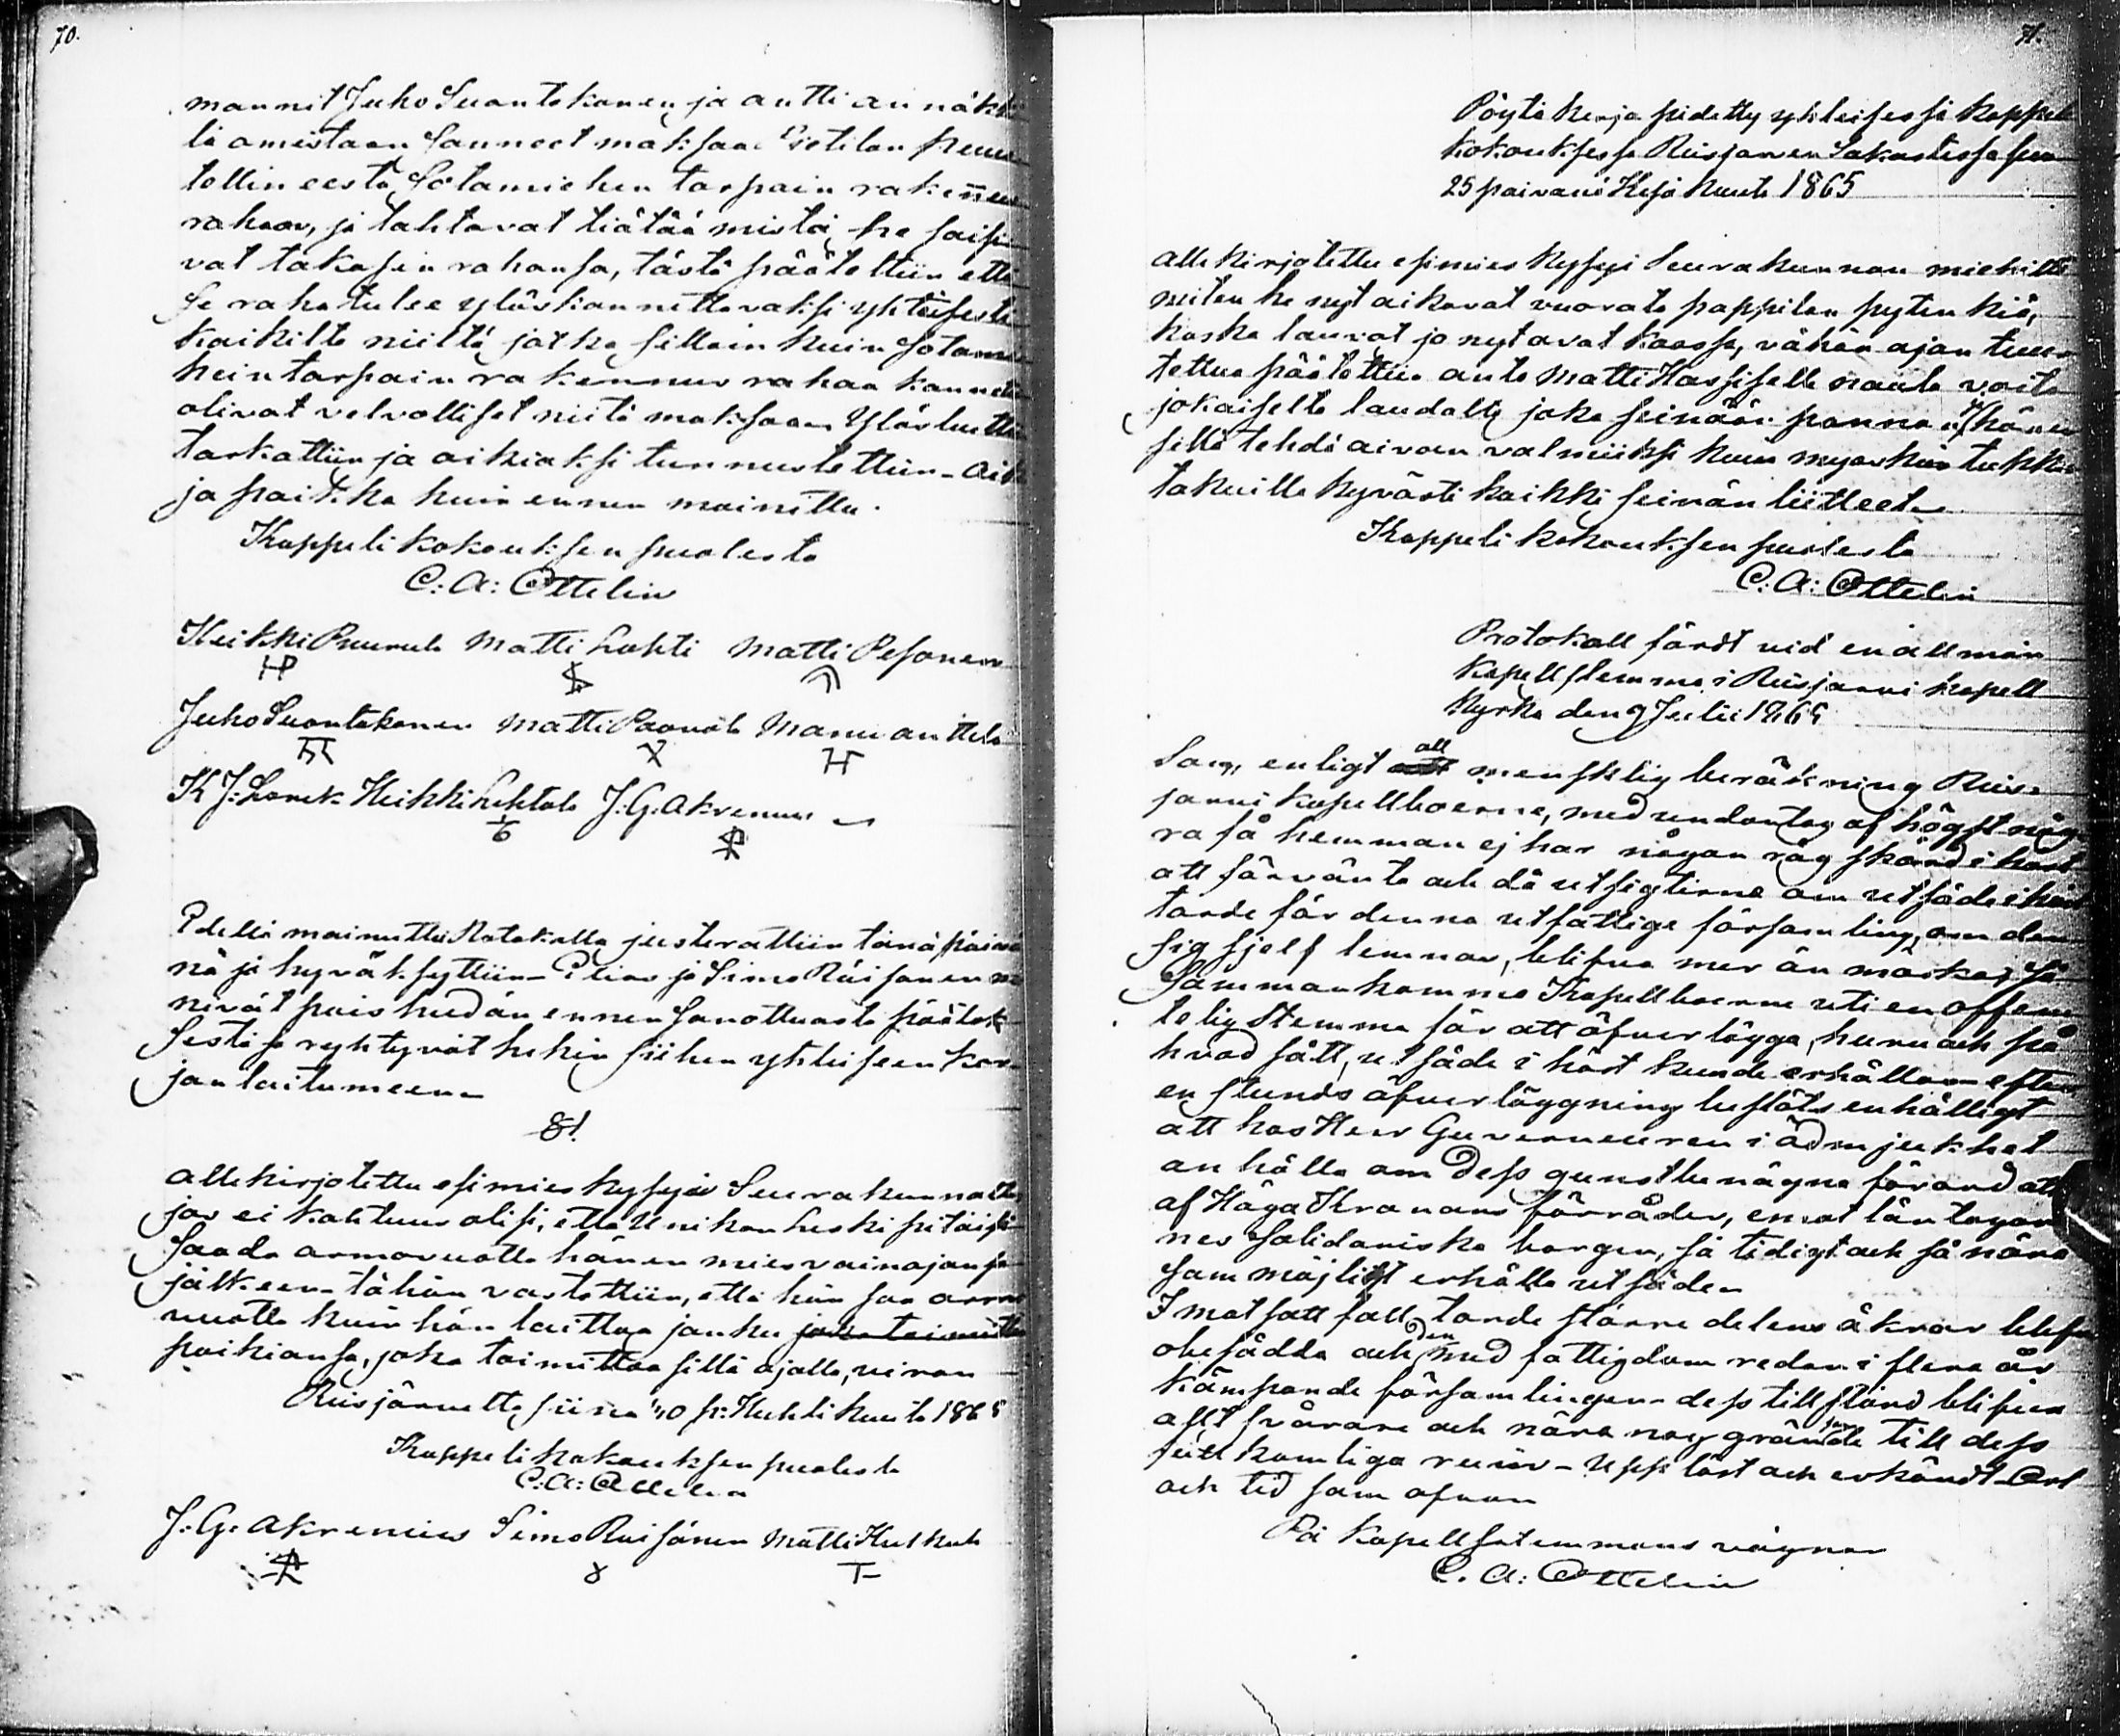 70.
mannit Juho Suontakanen ja antti an näkk
lä amistaan Sanneet maksaa Eistilan Puus
tellin eestä, Sotamiehen torpain rakennus
rahaa, ja tahtovat tiätää mistä he saisi
vat takasin rahansa, tästä päätettiin että
Se raha tulee ylöskannettavaksi yhteisesti
kaikilta niiltä jotka silloin kuin Sotamie
hein torpain rakennus rahaa kannetin
olivat velvolliset niitä maksaan Ylösluettu
tarkattiin ja oikiaksi tunnustettiin. Aika
ja paikka kuin ennen mainittu.
Kappeli kokouksen puolesta
C: A: Ottelin
Heikki Puurula Matti Lahti Matti Pesonen
HP
Juho Suontakanen Matti Paavola Manu anttila
K J: Lonck Heikki Lehtola J: G. Akrenius
Edellä mainuttu Protokolla justerattiin tänä päivä
nä ja hyväksyttiin. Elias ja Simo Räisänen me
nivät pois heidän ennen sanottuasta päätök
Sestä ja ryhtyvät hekin siihen yhteiseen kar
jan laitumeen.
8!
allekirjotettu esimies kysyi Seurakunnalta
jos ei kohtuus olisi, että Unikon Leski pitäisi
Saada armovuotta hänen miesvainajansa
jälkeen. tähän vastattiin, että hän saa armo
vuotta kuin hän laittaa jonku joka toimitta
paikiansa, joka toimittaa sillä ajalla, viran
Reisjärvellä siinä 10 p: Huhti kuuta 1865
Kappeli kokouksen puolesta
C: A: Ottelin
J: G. Akrenius Simo Räisänen Matti Huthala
71.
Pöytä kirja pidetty yhteisessä kappeli
kokouksessa Reisjärven Sakastissa sun
25 päivänä Kesä kuuta 1865
allekirjotettu esimies kysyi Seurakunnan miehiltä
miten he nyt aikovat vuorata pappilan pytinkiä,
koska lauvat jo nyt ovat kaassa, vähän ajan tuur
tettua päätettiin anta Matti Hassiselle naula
jokaiselta laudalta joka seinään pannan, ja hänen
sillä tehdä aivan valmiiksi kuin myöskin tukki
takuilla hyvästi kaikki seinän liitteet.
Kappeli kokouksen puolesta
C: A: Ottelin
Protokoll fördt vid en allmän
kapellstemma i Reisjärvi kapell
kyrka den 9 Julii 1865
Som, enligt all mensklig beräkning Reis-
järvi kapellboerne, med undantag af högst någ
ra få hemman ej har någon råg skörd i höst
att förvänta och då utsigterne om utsäde i höst
torde för denna utfattige församling, om den
sig sjelf lemnas, blifva mer än mörka; så
Sammankommo Kapellboerne uti en offent
telig Stemma för att öfverlägga, huru och på
hvad sätt, utsäde i höst kunde erhållas. efter
en stunds öfverläggning beslöts enhälligt
att hos Herr Guverneuren i ödmjukhet
anhålla om dess gunstbenägna förord att
af Höga Kronans förråder, emot låntagar
nes solidariska borgen, så tidigt och så nära
som möjligt erhålla utsäde.
I motsatt fall, torde större delens åkrar blifva
obesådda och den med fattigdom redan i flere år
kämpande församlingens dess tillstånd blifva
allt svårare och nära nog gränsande till dess
fullkomliga ruin. Uppläst och erkändt. Ort
och tid som ofvan
På Kapellstemmans vägnar
C. A: Ottelin